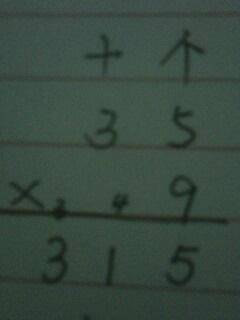 十 个
3 5
× 3 4 9
3 1 5